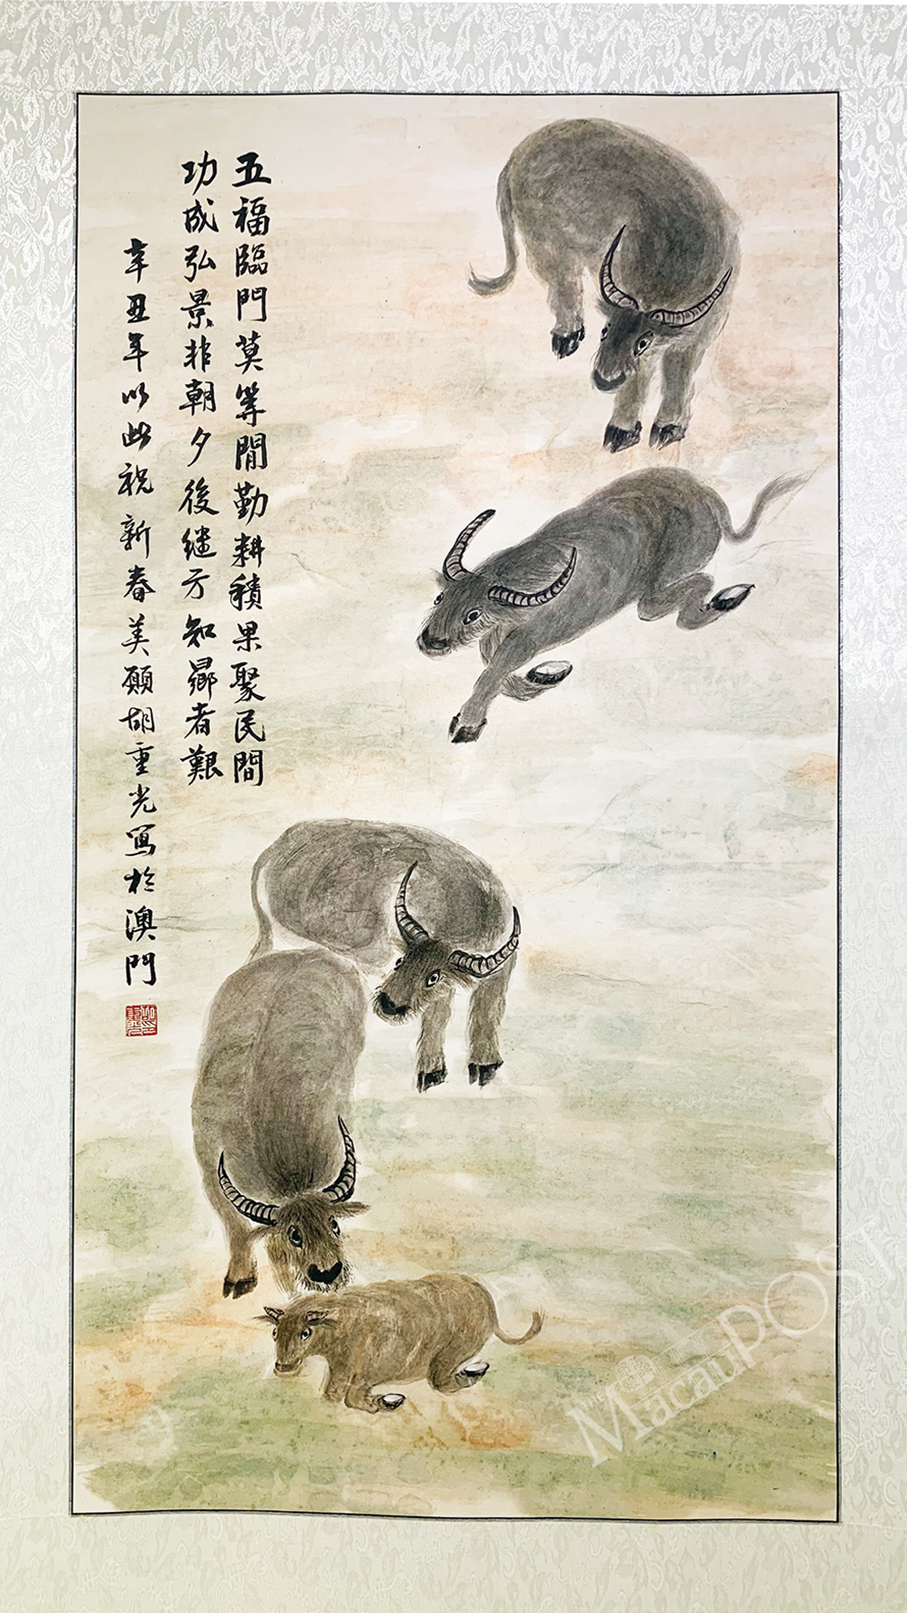 五福臨門莫等閒勤耕積果聚民間
功成弘景非朝夕後繼方知者艱
辛丑年以此祝新春美願胡重光寫於澳門
MacauPOST